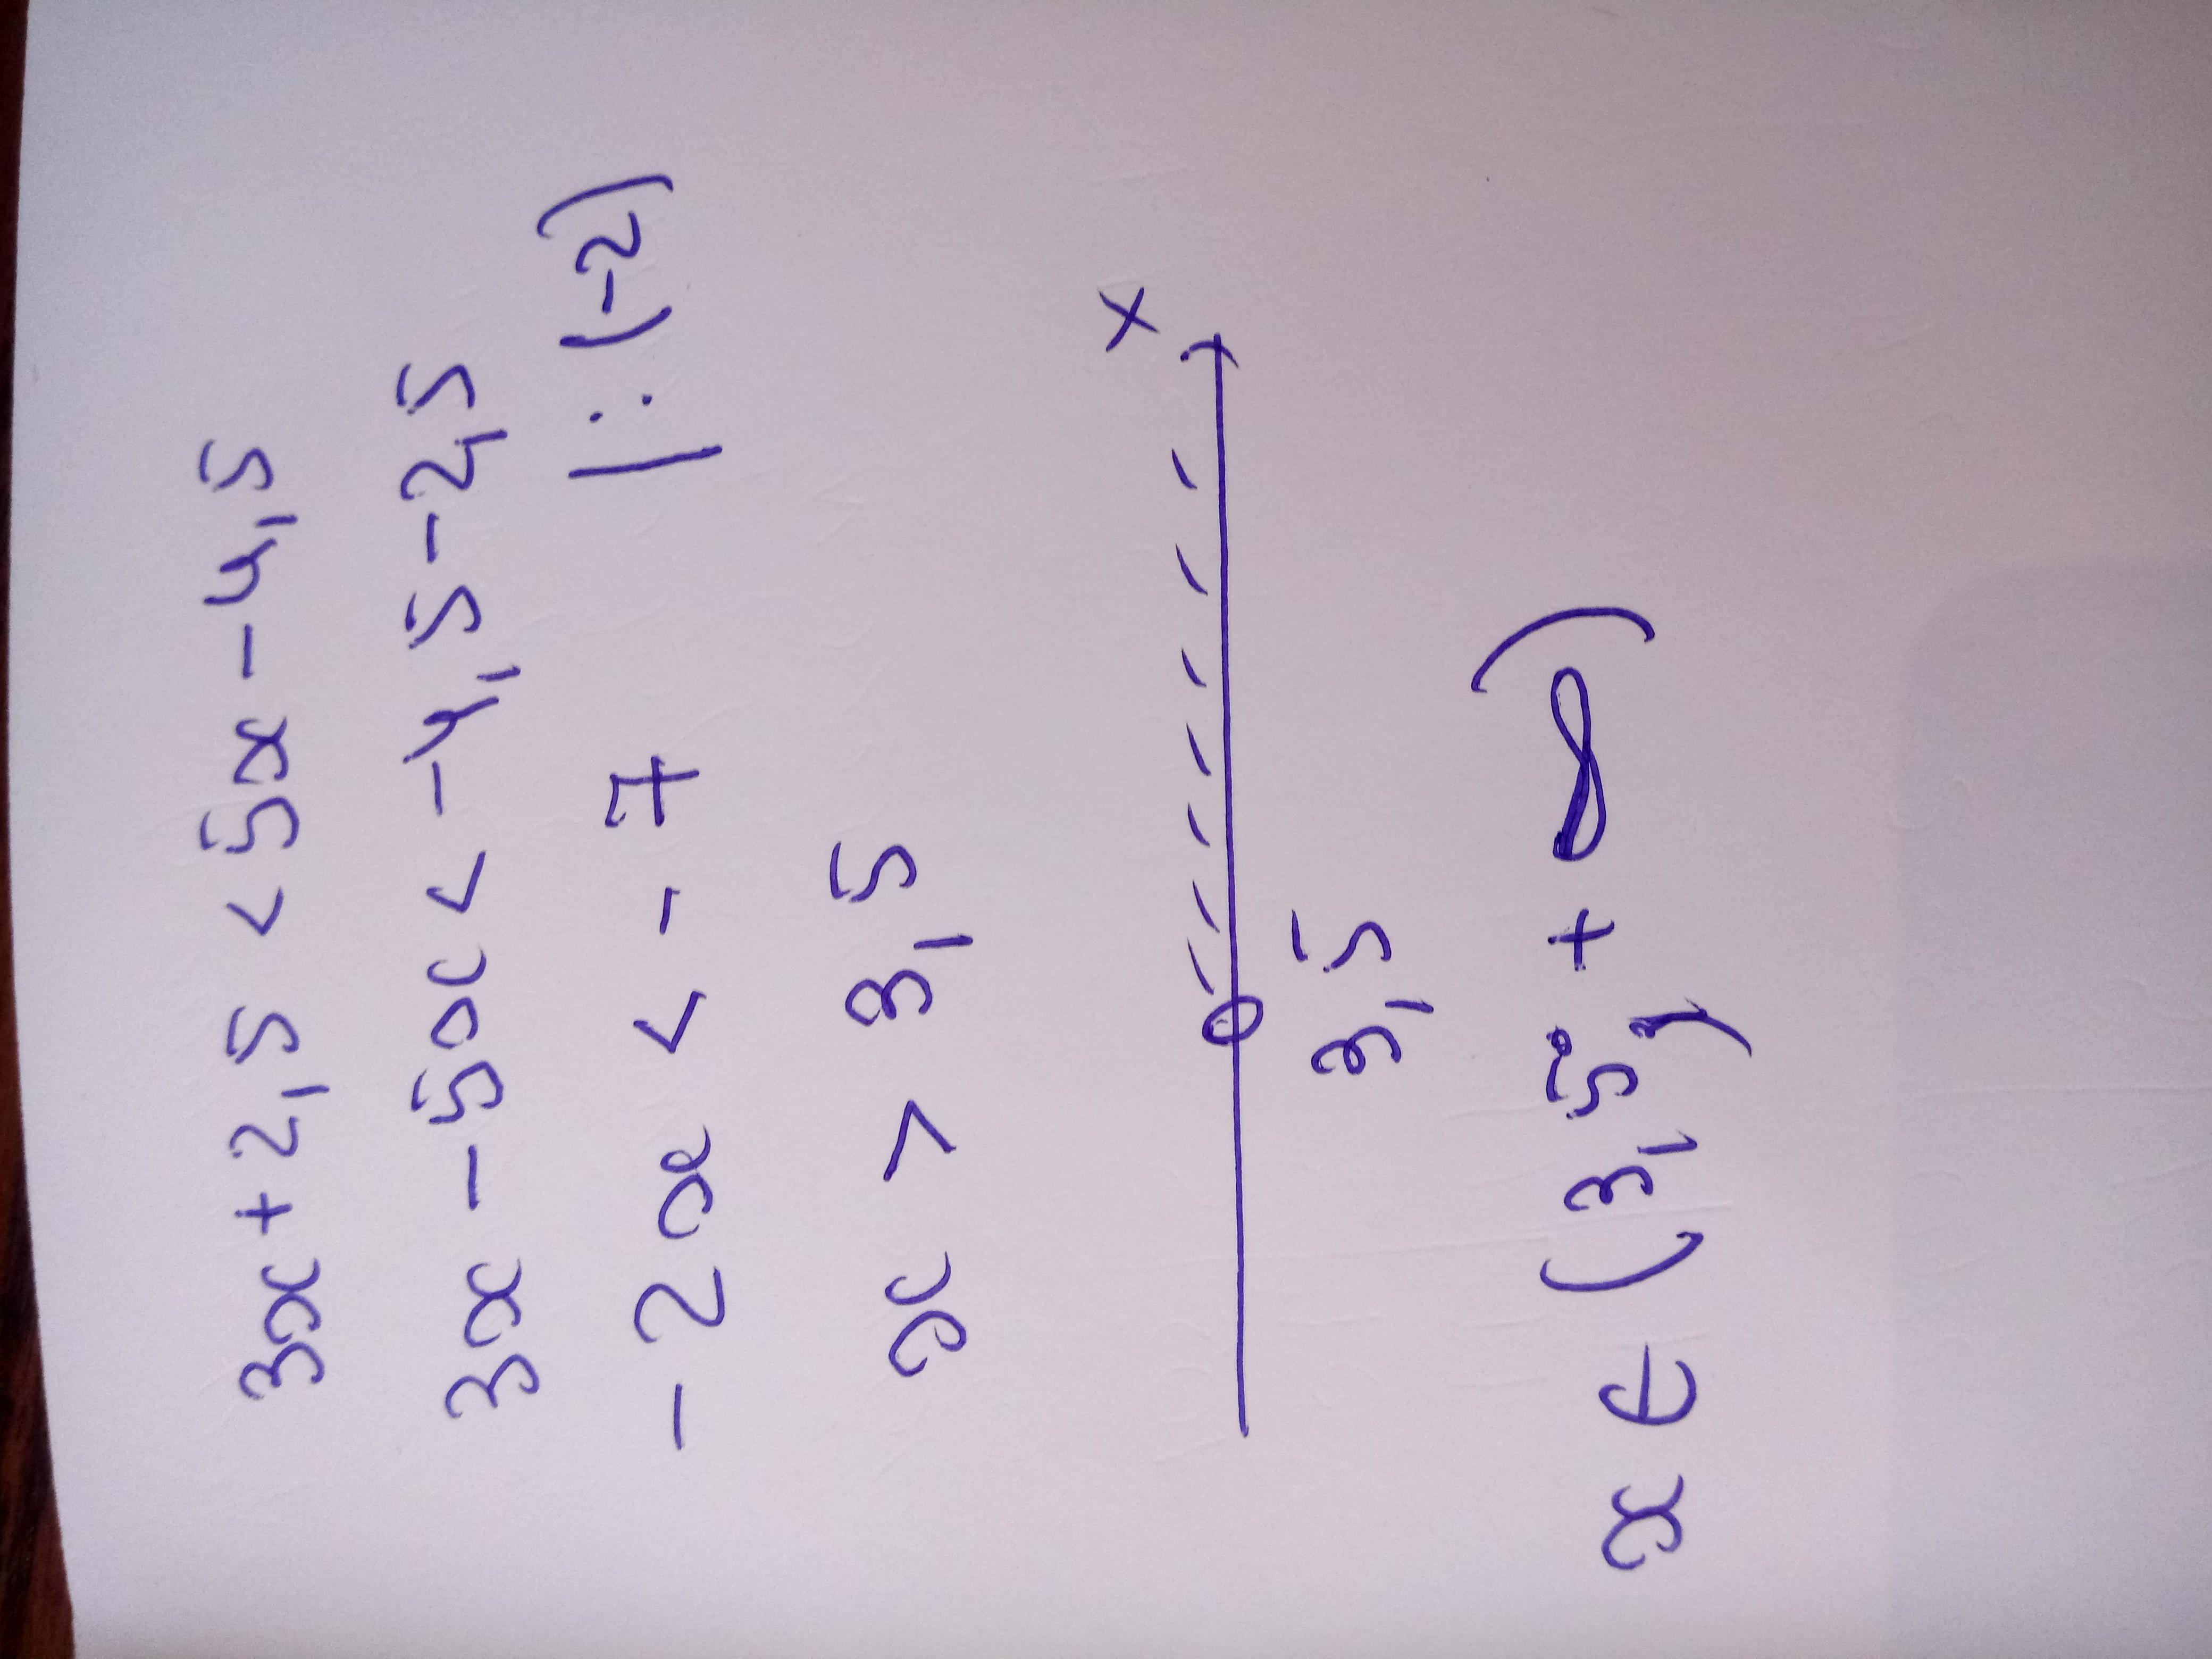 3x + 2,5 < 5x - 4,5
3x - 5x < -4,5 - 2,5
-2x < -7 |:(-2)
x > 3,5
x
3,5
x ∈ (3,5; +∞)